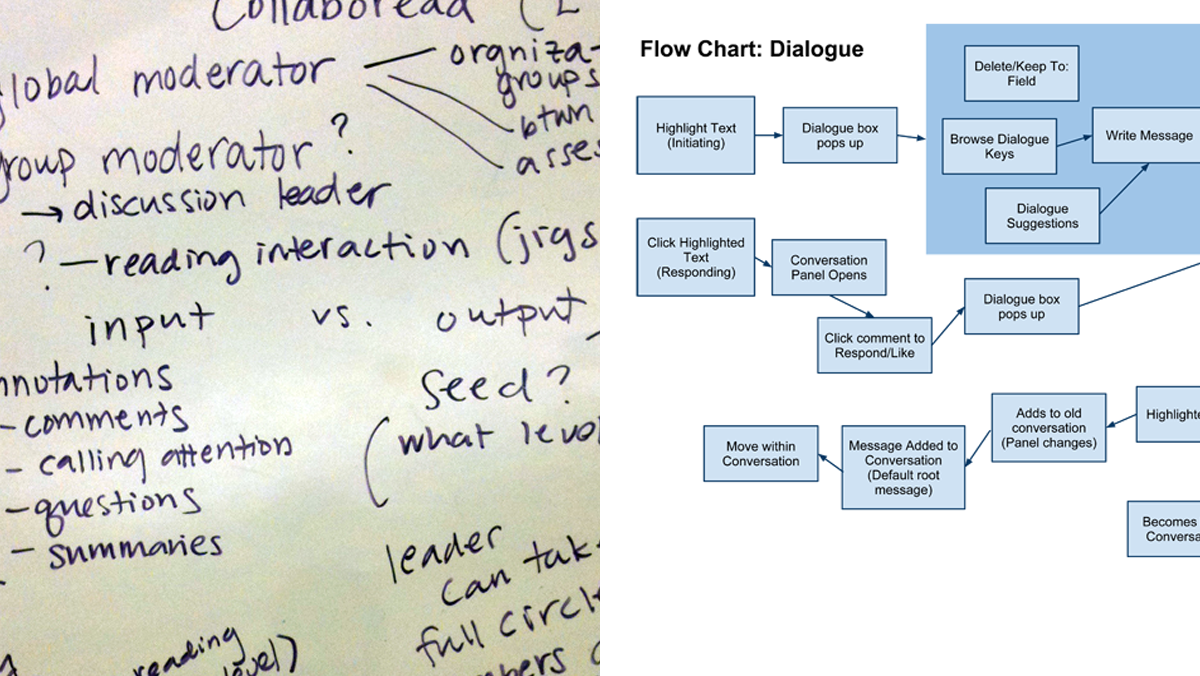 Collaboread (
global moderator — orgniza-
groups
btwn
asses
group moderator?
→ discussion leader
? — reading interaction (jigs
input vs. output
nnotations
- comments
- calling attention
- questions
- summaries
seed?
(what level
leader
can take
full circle
mbers
reading
level)
Flow Chart: Dialogue
Highlight Text
(Initiating)
Dialogue box
pops up
Delete/Keep To:
Field
Browse Dialogue
Keys
Write Message
Dialogue
Suggestions
Click Highlighted
Text
(Responding)
Conversation
Panel Opens
Click comment to
Respond/Like
Dialogue box
pops up
Highlighte
Adds to old
conversation
(Panel changes)
Message Added to
Conversation
(Default root
message)
Move within
Conversation
Becomes
Conversa